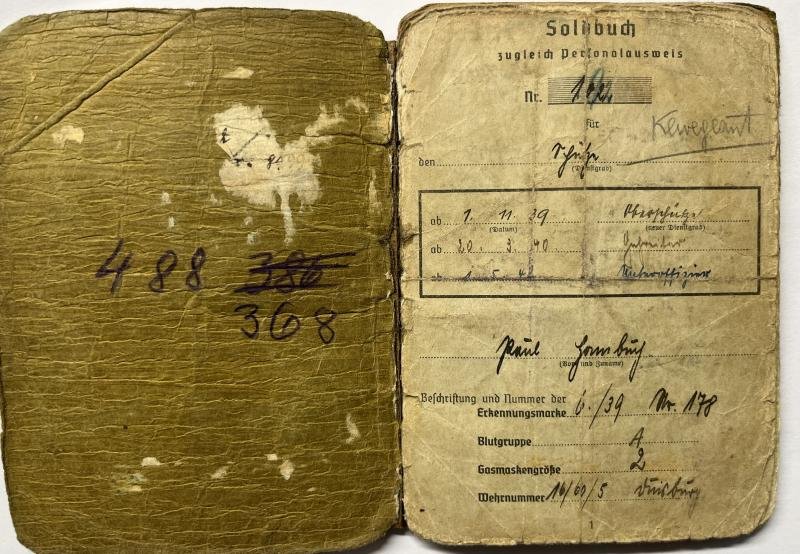 488 386
368
Soldbuch
zugleich Personalausweis
Nr.
für
den Schütze
(Dienstgrad)
ab 1. 11. 39 Oberschütze
(Datum) (neuer Dienstgrad)
ab 20. 3. 40 Gefreiter
ab 1. 5. 42 Unteroffizier
Paul Hambuch
(Vor- und Zuname)
Beschriftung und Nummer der
Erkennungsmarke 6./39 Nr. 178
Blutgruppe A
Gasmaskengröße 2
Wehrnummer 16/60/5 Duisburg
1